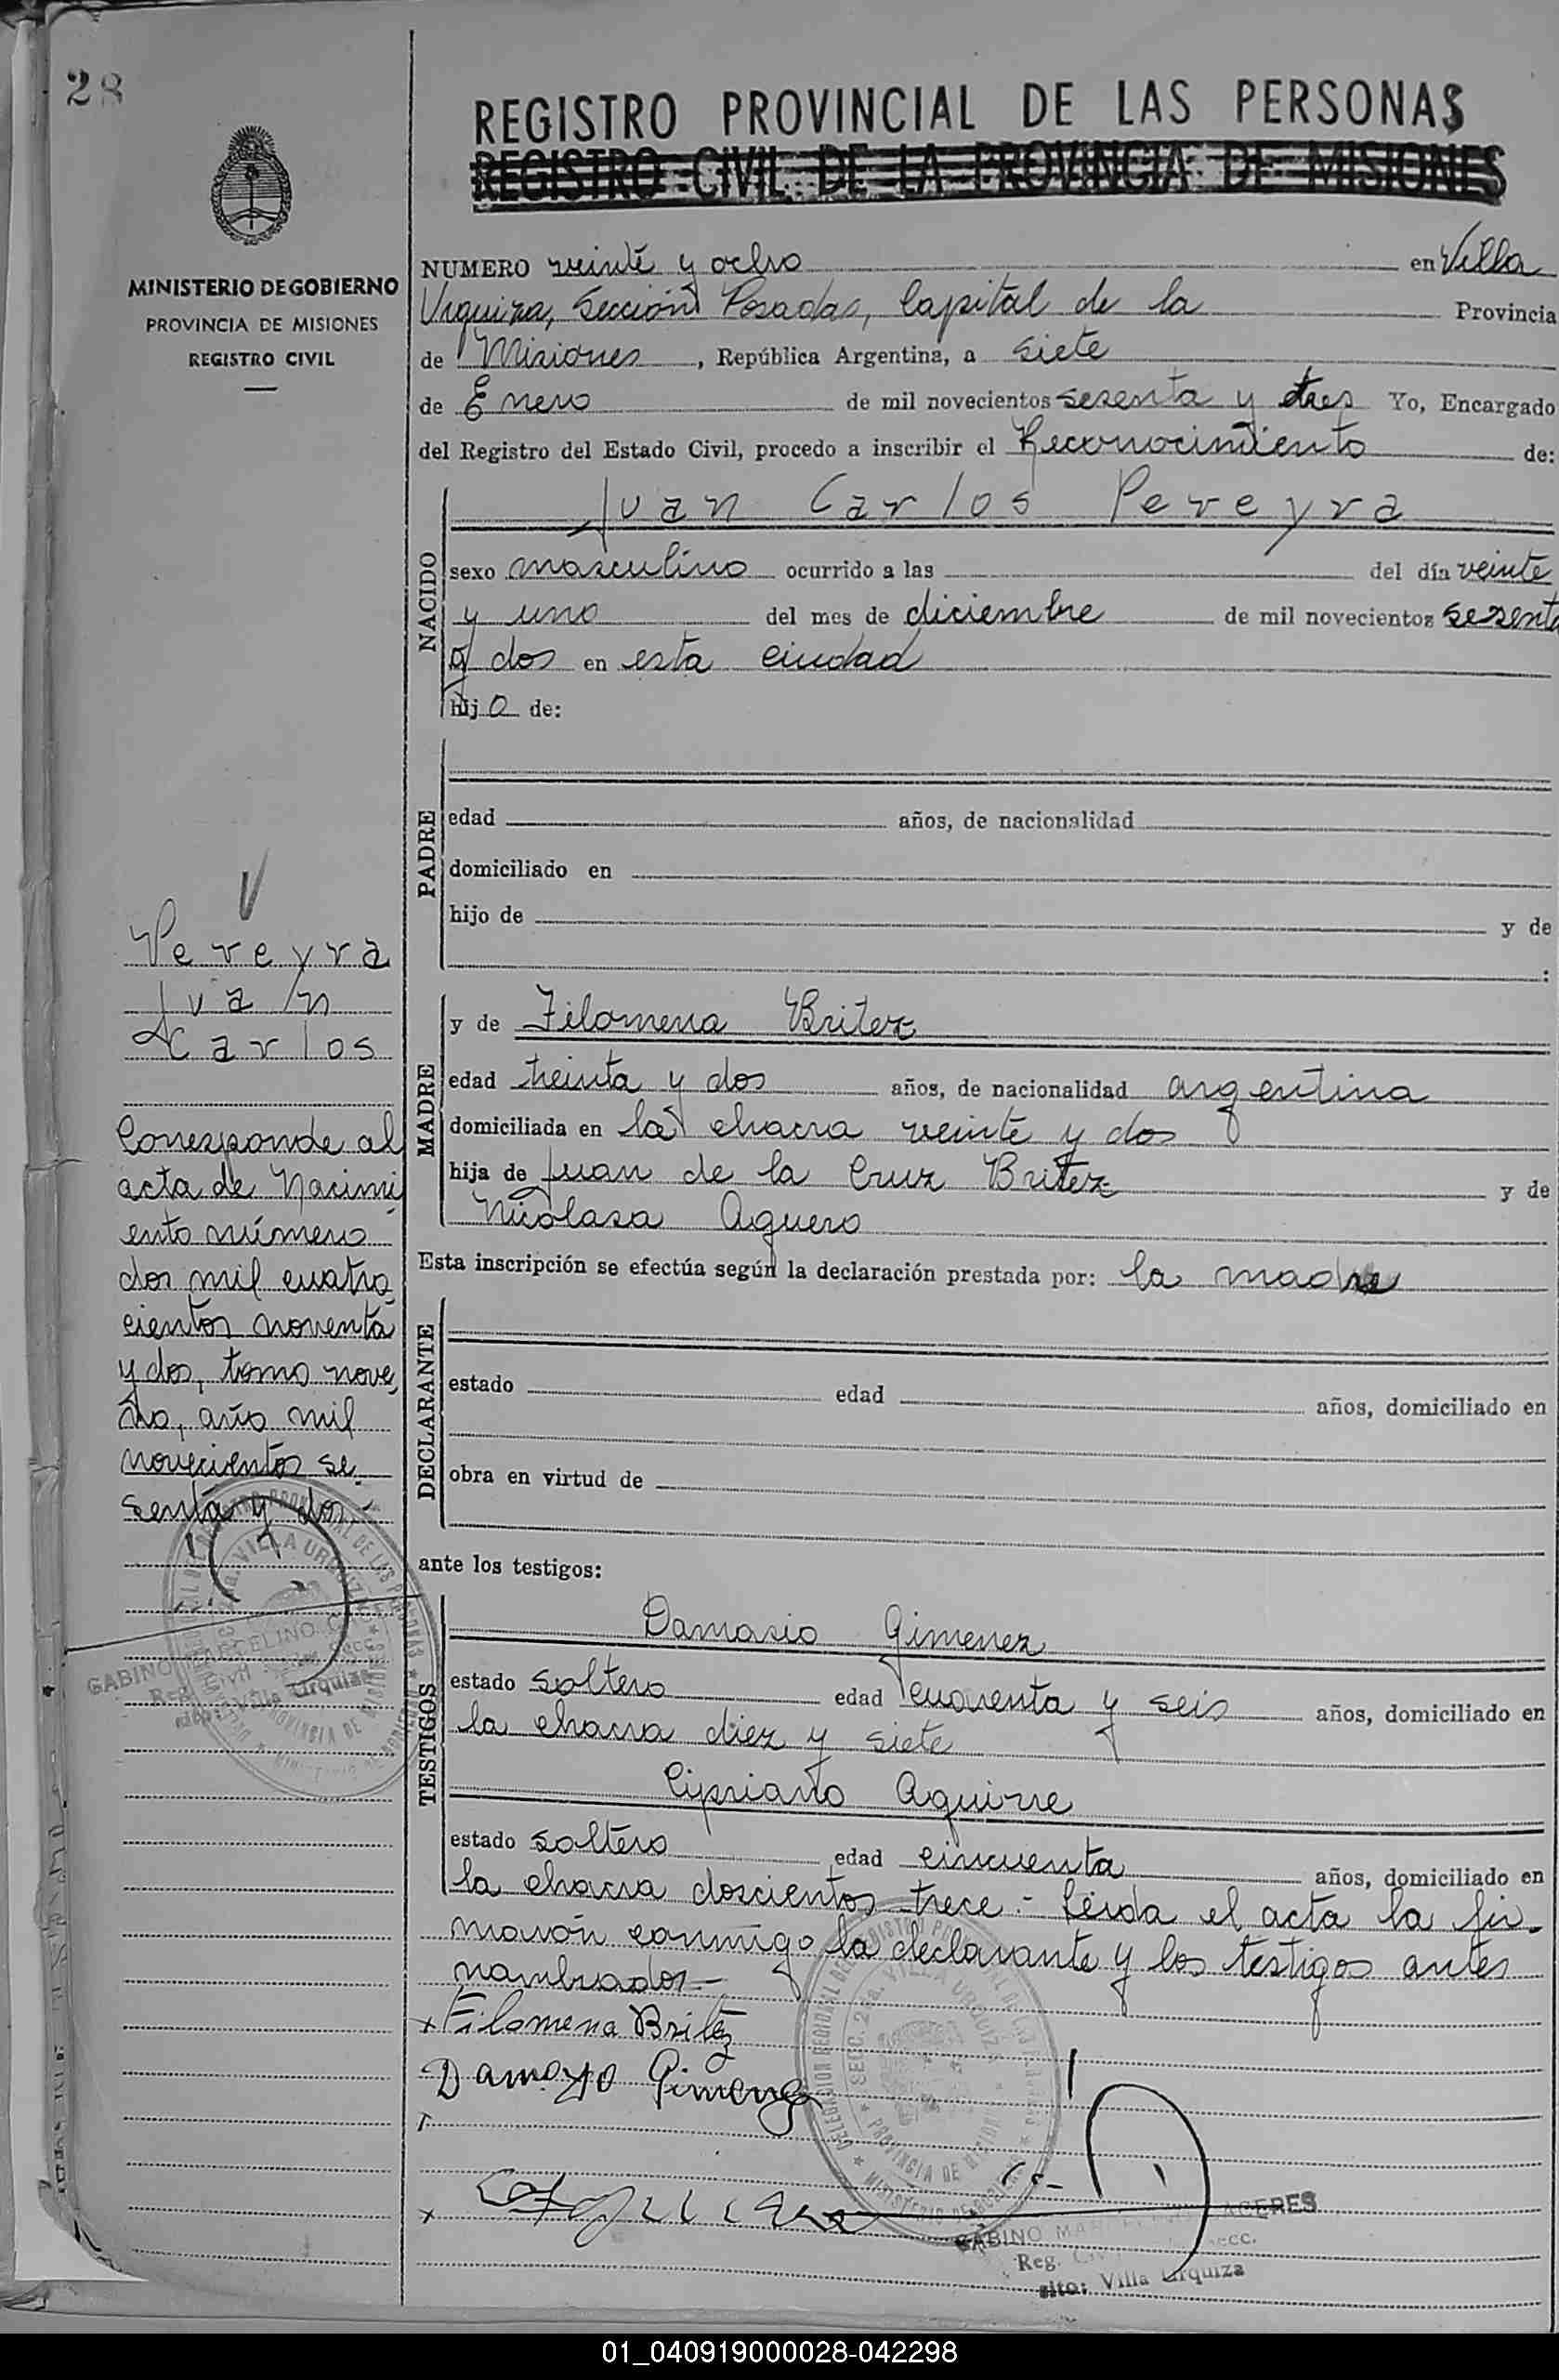 28
REGISTRO PROVINCIAL DE LAS PERSONAS
REGISTRO CIVIL DE LA PROVINCIA DE MISIONES
MINISTERIO DE GOBIERNO
PROVINCIA DE MISIONES
REGISTRO CIVIL
NUMERO veinte y ocho en Villa
Urquiza, Sección Posadas, Capital de la Provincia
de Misiones, República Argentina, a siete
de Enero de mil novecientos sesenta y tres Yo, Encargado
del Registro del Estado Civil, procedo a inscribir el Reconocimiento de:
NACIDO
Juan Carlos Pereyra
sexo masculino ocurrido a las del día veinte
y uno del mes de diciembre de mil novecientos sesenta
y dos en esta ciudad
hijo de:
PADRE
edad años, de nacionalidad
domiciliado en
hijo de y de
:
Pereyra
Juan
Carlos
Corresponde al
acta de Nacimi
ento número
dos mil cuatro
cientos noventa
y dos, tomo nove
no, año mil
novecientos se
senta y dos.-
MADRE
y de Filomena Britez
edad treinta y dos años, de nacionalidad argentina
domiciliada en la chacra veinte y dos
hija de Juan de la Cruz Britez y de
Nicolasa Aguero
Esta inscripción se efectúa según la declaración prestada por: la madre
DECLARANTE
estado edad años, domiciliado en
obra en virtud de
ante los testigos:
TESTIGOS
Damasio Gimenez
estado soltero edad cuarenta y seis años, domiciliado en
la chacra diez y siete
Cipriano Aguirre
estado soltero edad cincuenta años, domiciliado en
la chacra doscientos trece.- Leída el acta la fir-
maron conmigo la declarante y los testigos antes
nombrados.-
x Filomena Britez
Damasio Gimenez
x
GABINO MARCELINO CACERES
Reg. Civil Secc.
sito: Villa Urquiza
DELEGACION REGIONAL DEL REGISTRO PROVINCIAL DE LAS PERSONAS
SECC. 2da. VILLA URQUIZA
PROVINCIA DE MISIONES
MINISTERIO DE GOBIERNO
GABINO MARCELINO CACERES
Reg. Civil Secc.
sito: Villa Urquiza
01_040919000028-042298